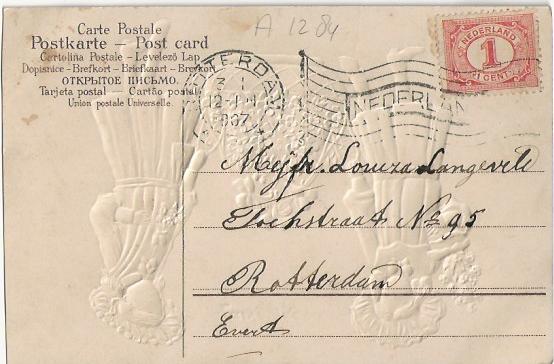 A 1284
Carte Postale
Postkarte – Post card
Cartolina Postale – Levelező Lap
Dopisnice – Brefkort – Briefkaart – Brevkort
ОТКРЫТОЕ ПИСЬМО.
Tarjeta postal – Cartão postal
Union postale Universelle.
NEDERLAND
1
CENT
TERDAM
12-1
NEDERLAN
Mejfr. Louiza Langeveld
Jochstraat No 95
Rotterdam
Evert